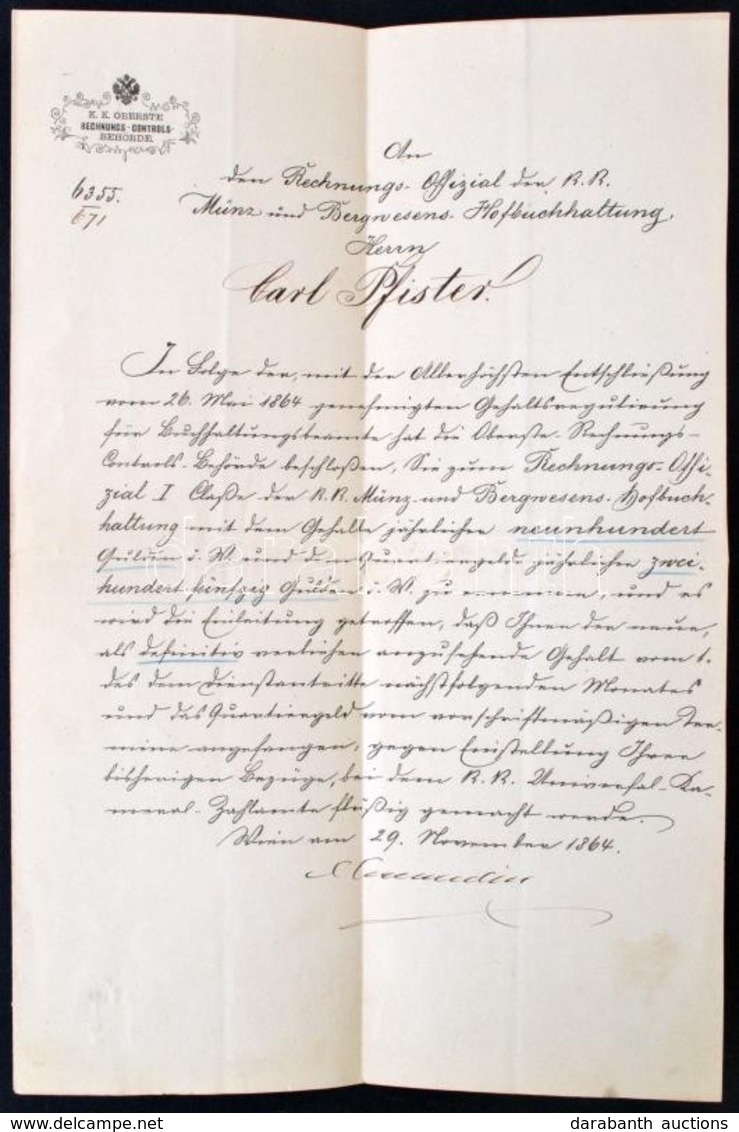 K. K. OBERSTE
RECHNUNGS-CONTROLS-
BEHÖRDE.
6355.
671
An
den Rechnungs-Offizial der K. K.
Münz und Bergwesens-Hofbuchhaltung,
Herrn
Carl Pfister.
In Folge der, mit der Allerhöchsten Entschließung
vom 26. Mai 1864 genehmigten Gehaltsregulirung
für Buchhaltungsbeamte hat die Oberste-Rechnungs-
Controls-Behörde beschloßen, Sie zum Rechnungs-Offi-
zial I Claße der K. K. Münz-und Bergwesens-Hofbuch-
haltung mit dem Gehalte jährlicher neunhundert
Gulden ö. W. und dem Quartiergelde jährlicher zwei-
hundert fünfzig Gulden ö. W. zu ernennen, und es
wird die Einleitung getroffen, daß Ihnen der neue,
als definitiv verliehen anzusehende Gehalt vom 1.
des dem Dienstantritte nächstfolgenden Monates
und das Quartiergeld vom vorschriftmäßigen Ter-
mine angefangen, gegen Einstellung Ihrer
bisherigen Bezüge, bei dem K. K. Universal-Ka-
meral-Zahlamte flüßig gemacht werde.
Wien am 29. November 1864.
darabanth
darabanth auctions